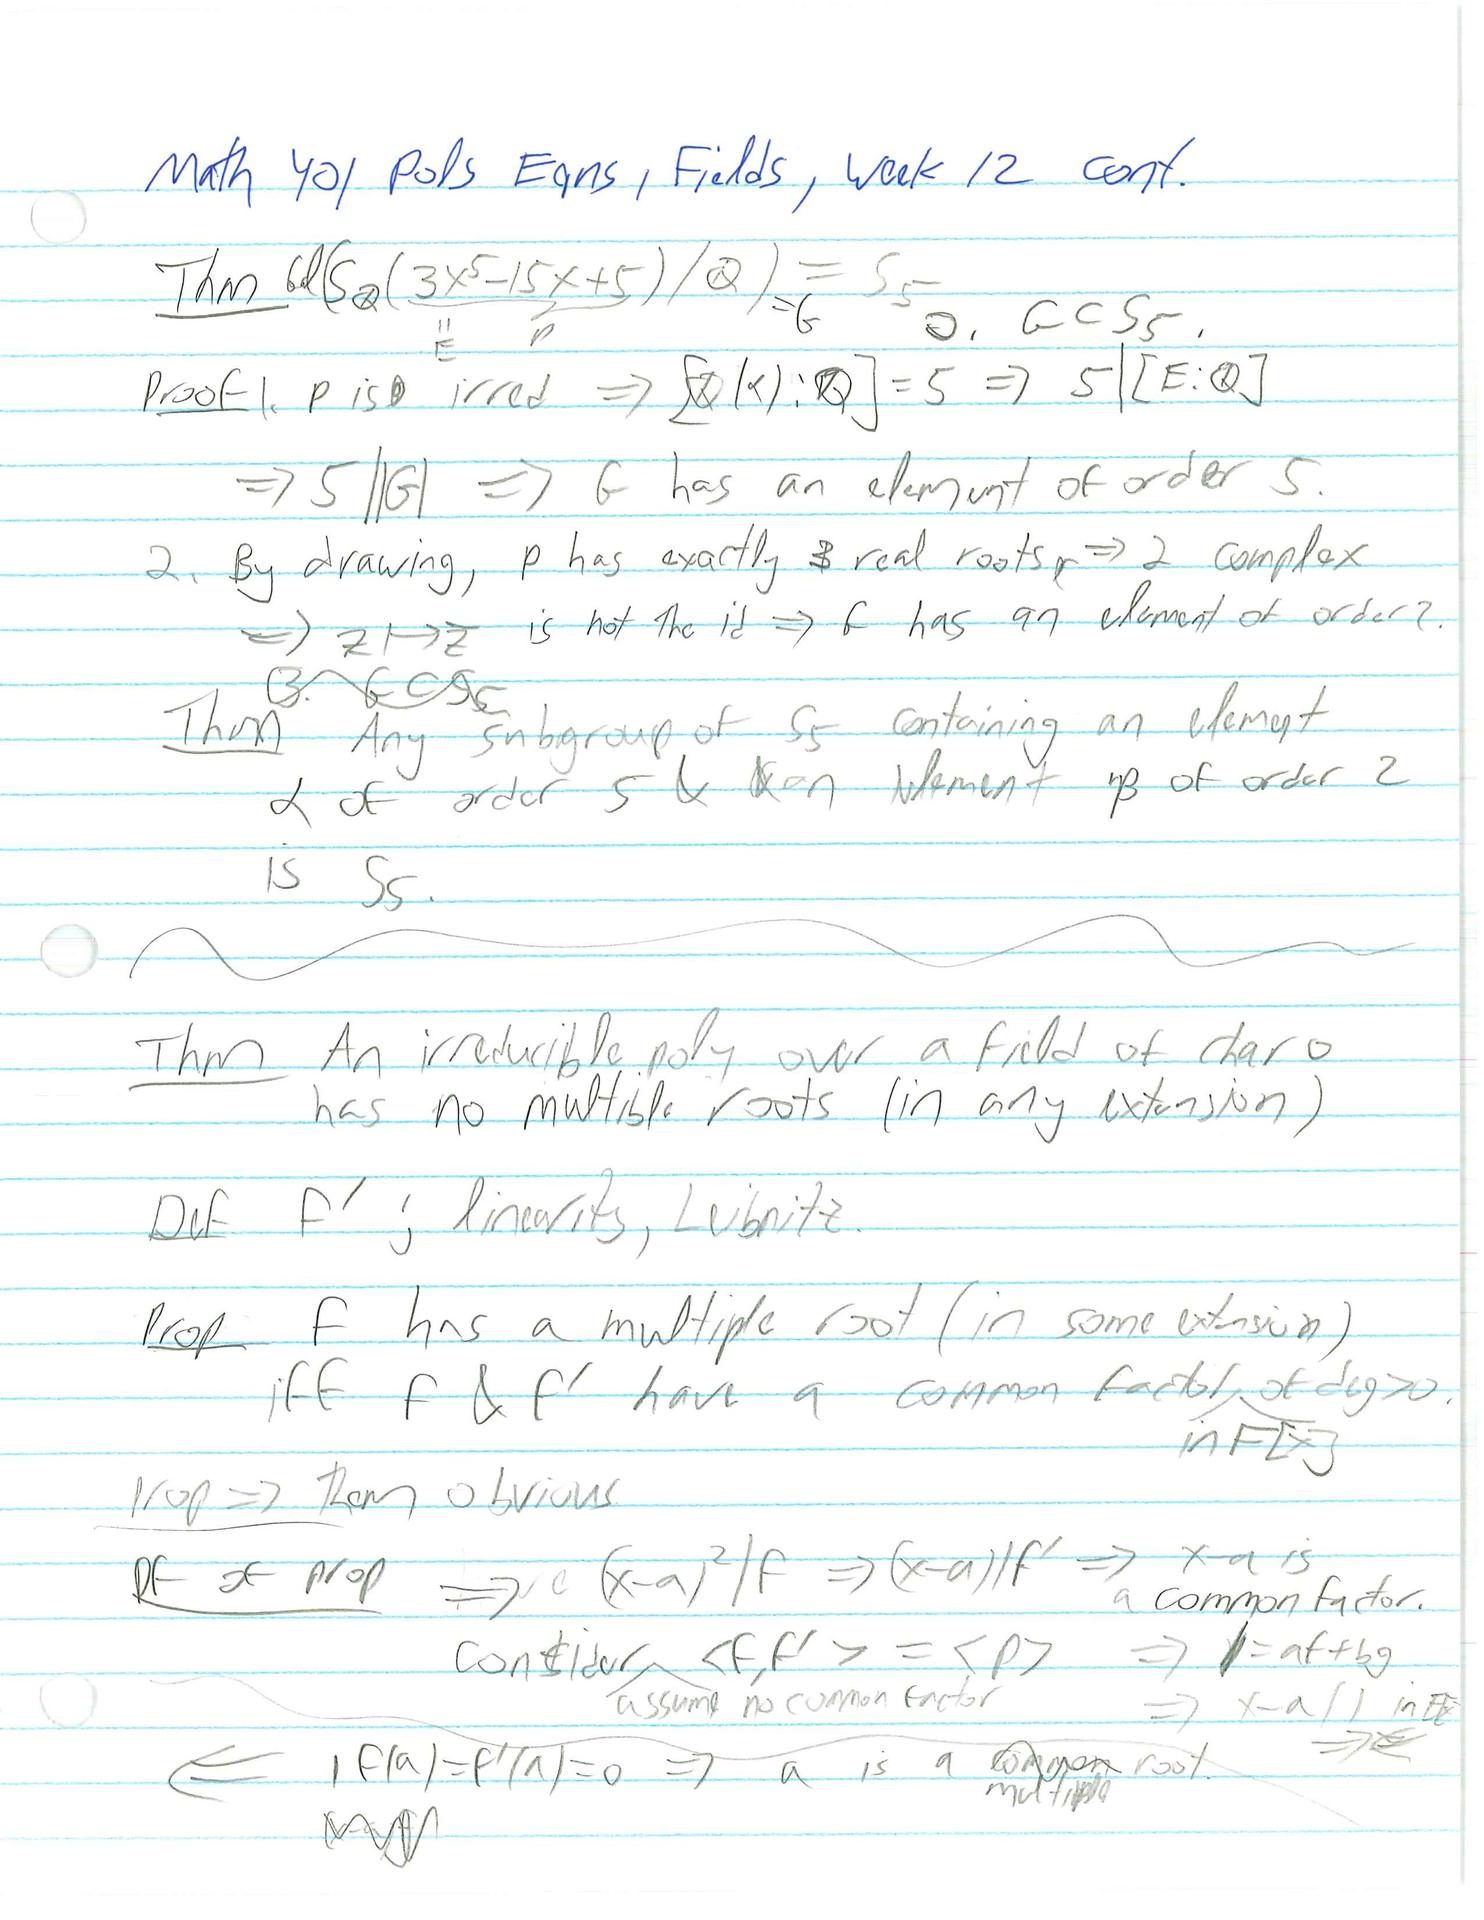 Math 401 Pols Eqns, Fields, Week 12 cont.
Thm Gal(S_Q(3x^5-15x+5)/Q) = S_5
=G
0. G⊂S_5.
" E p
Proof 1. p is irred ⇒ [Q(α):Q]=5 ⇒ 5|[E:Q]
⇒ 5||G| ⇒ G has an element of order 5.
2. By drawing, p has exactly 3 real roots, ⇒ 2 complex
⇒ z↦z̄ is not the id ⇒ G has an element of order 2.
3. G⊂S_5
Thm Any subgroup of S_5 containing an element
α of order 5 & an element β of order 2
is S_5.
Thm An irreducible poly over a field of char 0
has no multiple roots (in any extension)
Def f' ; linearity, Leibnitz.
Prop f has a multiple root (in some extension)
iff f & f' have a common factor, of deg>0.
in F[x]
Prop ⇒ thm obvious
Pf of prop ⇒ (x-a)^2|f ⇒ (x-a)|f' ⇒ x-a is
a common factor.
Consider <f,f'> = <p> ⇒ 1=af+bg
assume no common factor ⇒ x-a|1 in E
⇒⇐
⇐ f(a)=f'(a)=0 ⇒ a is a common root.
multiple